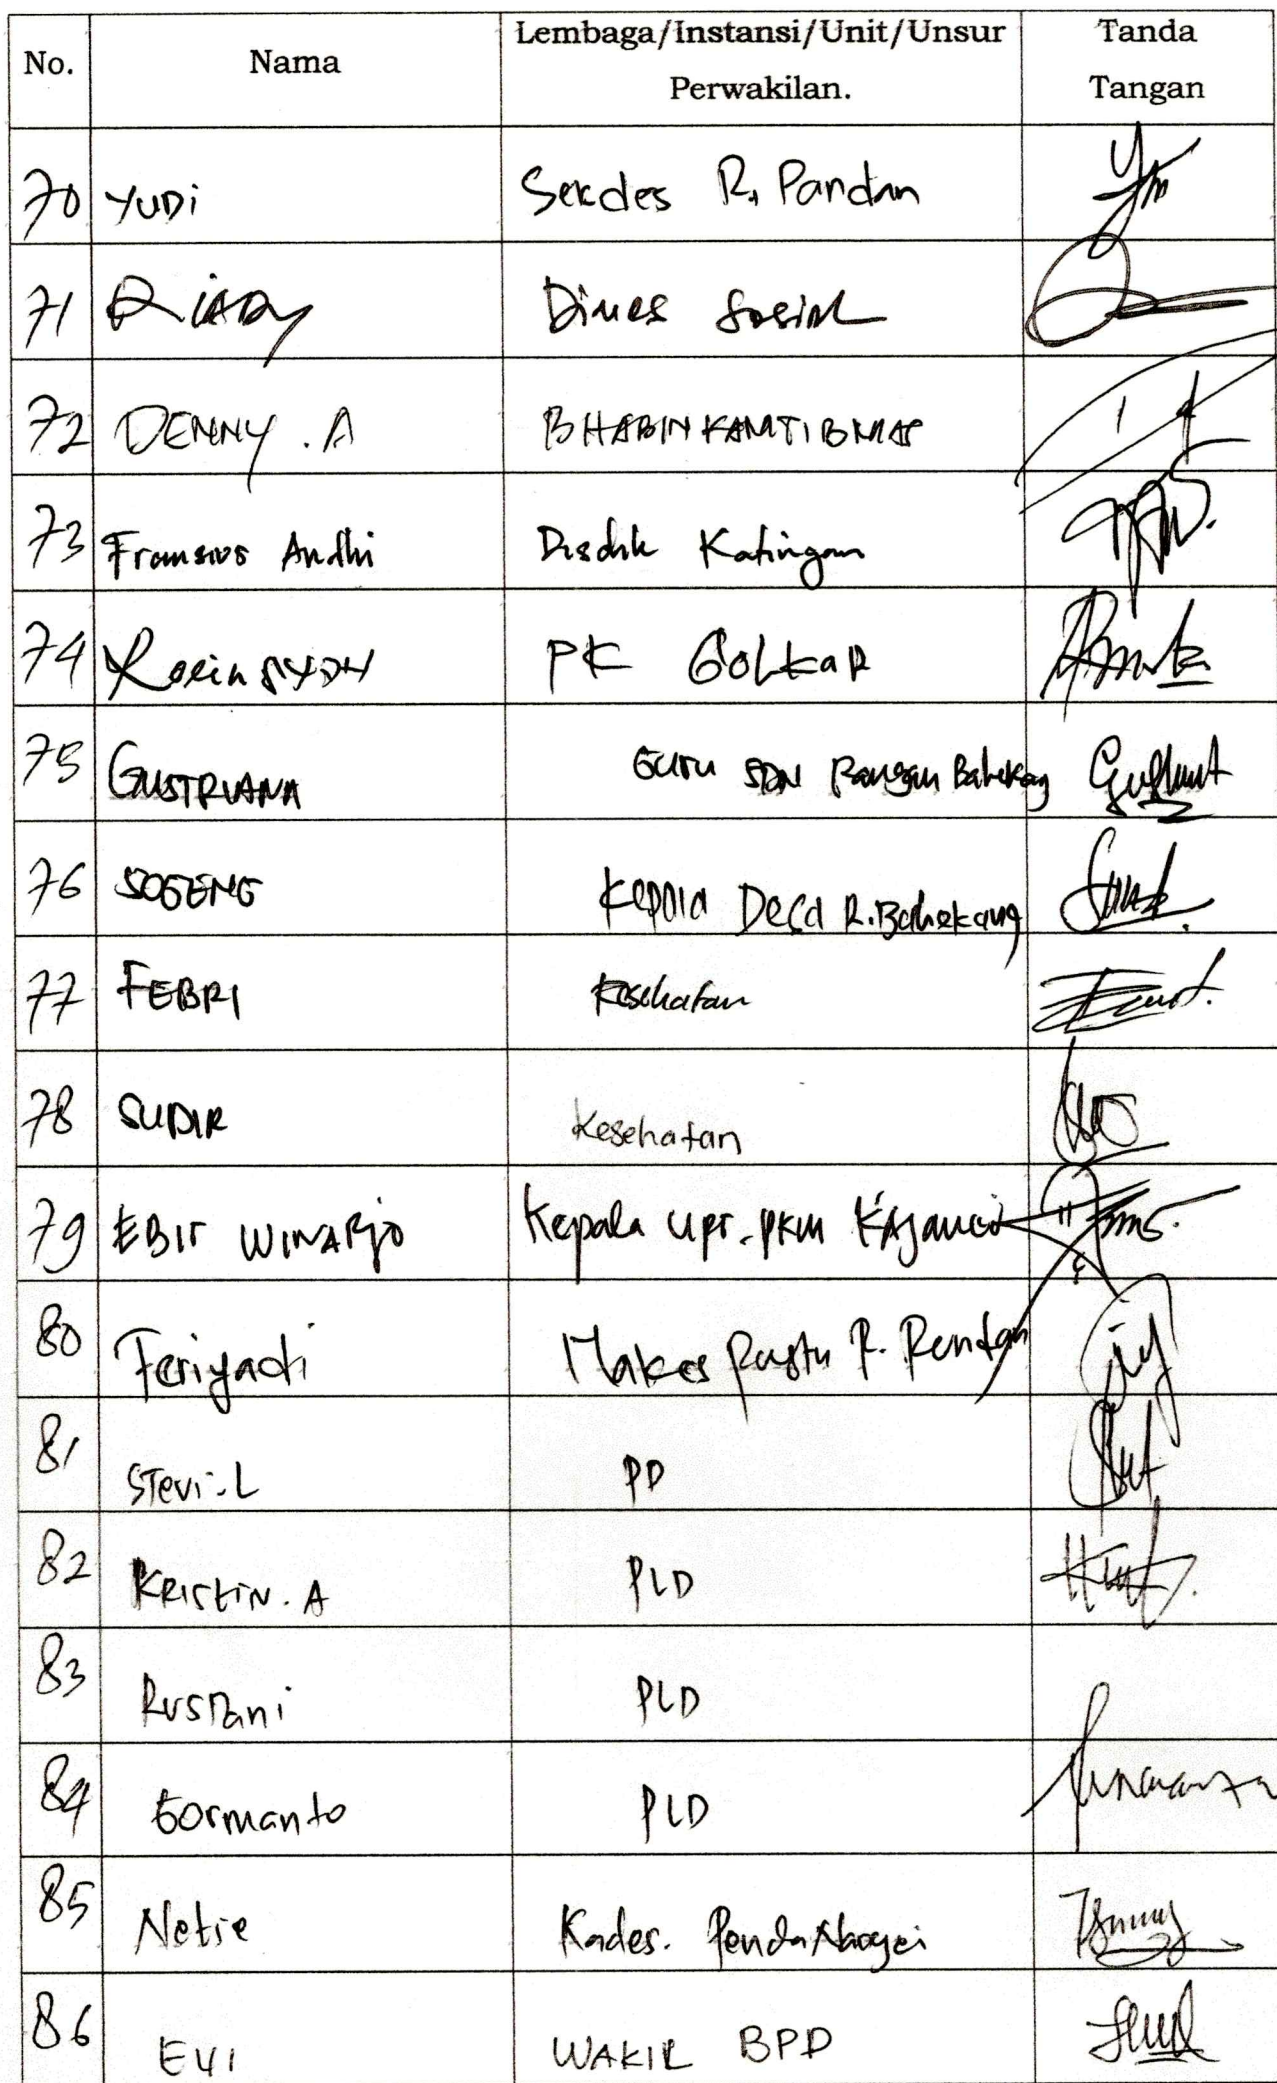 No. Nama Lembaga/Instansi/Unit/Unsur Perwakilan. Tanda Tangan
70 YUDi Sekdes R. Pandan
71 RiADy Dinas Sosial
72 DENNY . A BHABINKAMTIBMAS
73 Fransios Andhi Disdik Katingan
74 PK GOLKAR
75 GUSTRIANA GURU SDN Rangan Bahekang
76 SOGENG Kepala Desa R. Bahekang
77 FEBRI Kesehatan
78 SUDIR Kesehatan
79 EBIT WINARJO Kepala UPT. PKM
80 Feriyadi Pustu R.
81 STevi. L PD
82 KRISTIN. A PLD
83 RUSTani PLD
84 Gormanto PLD
85 Netie Kades.
86 EVI WAKIL BPD